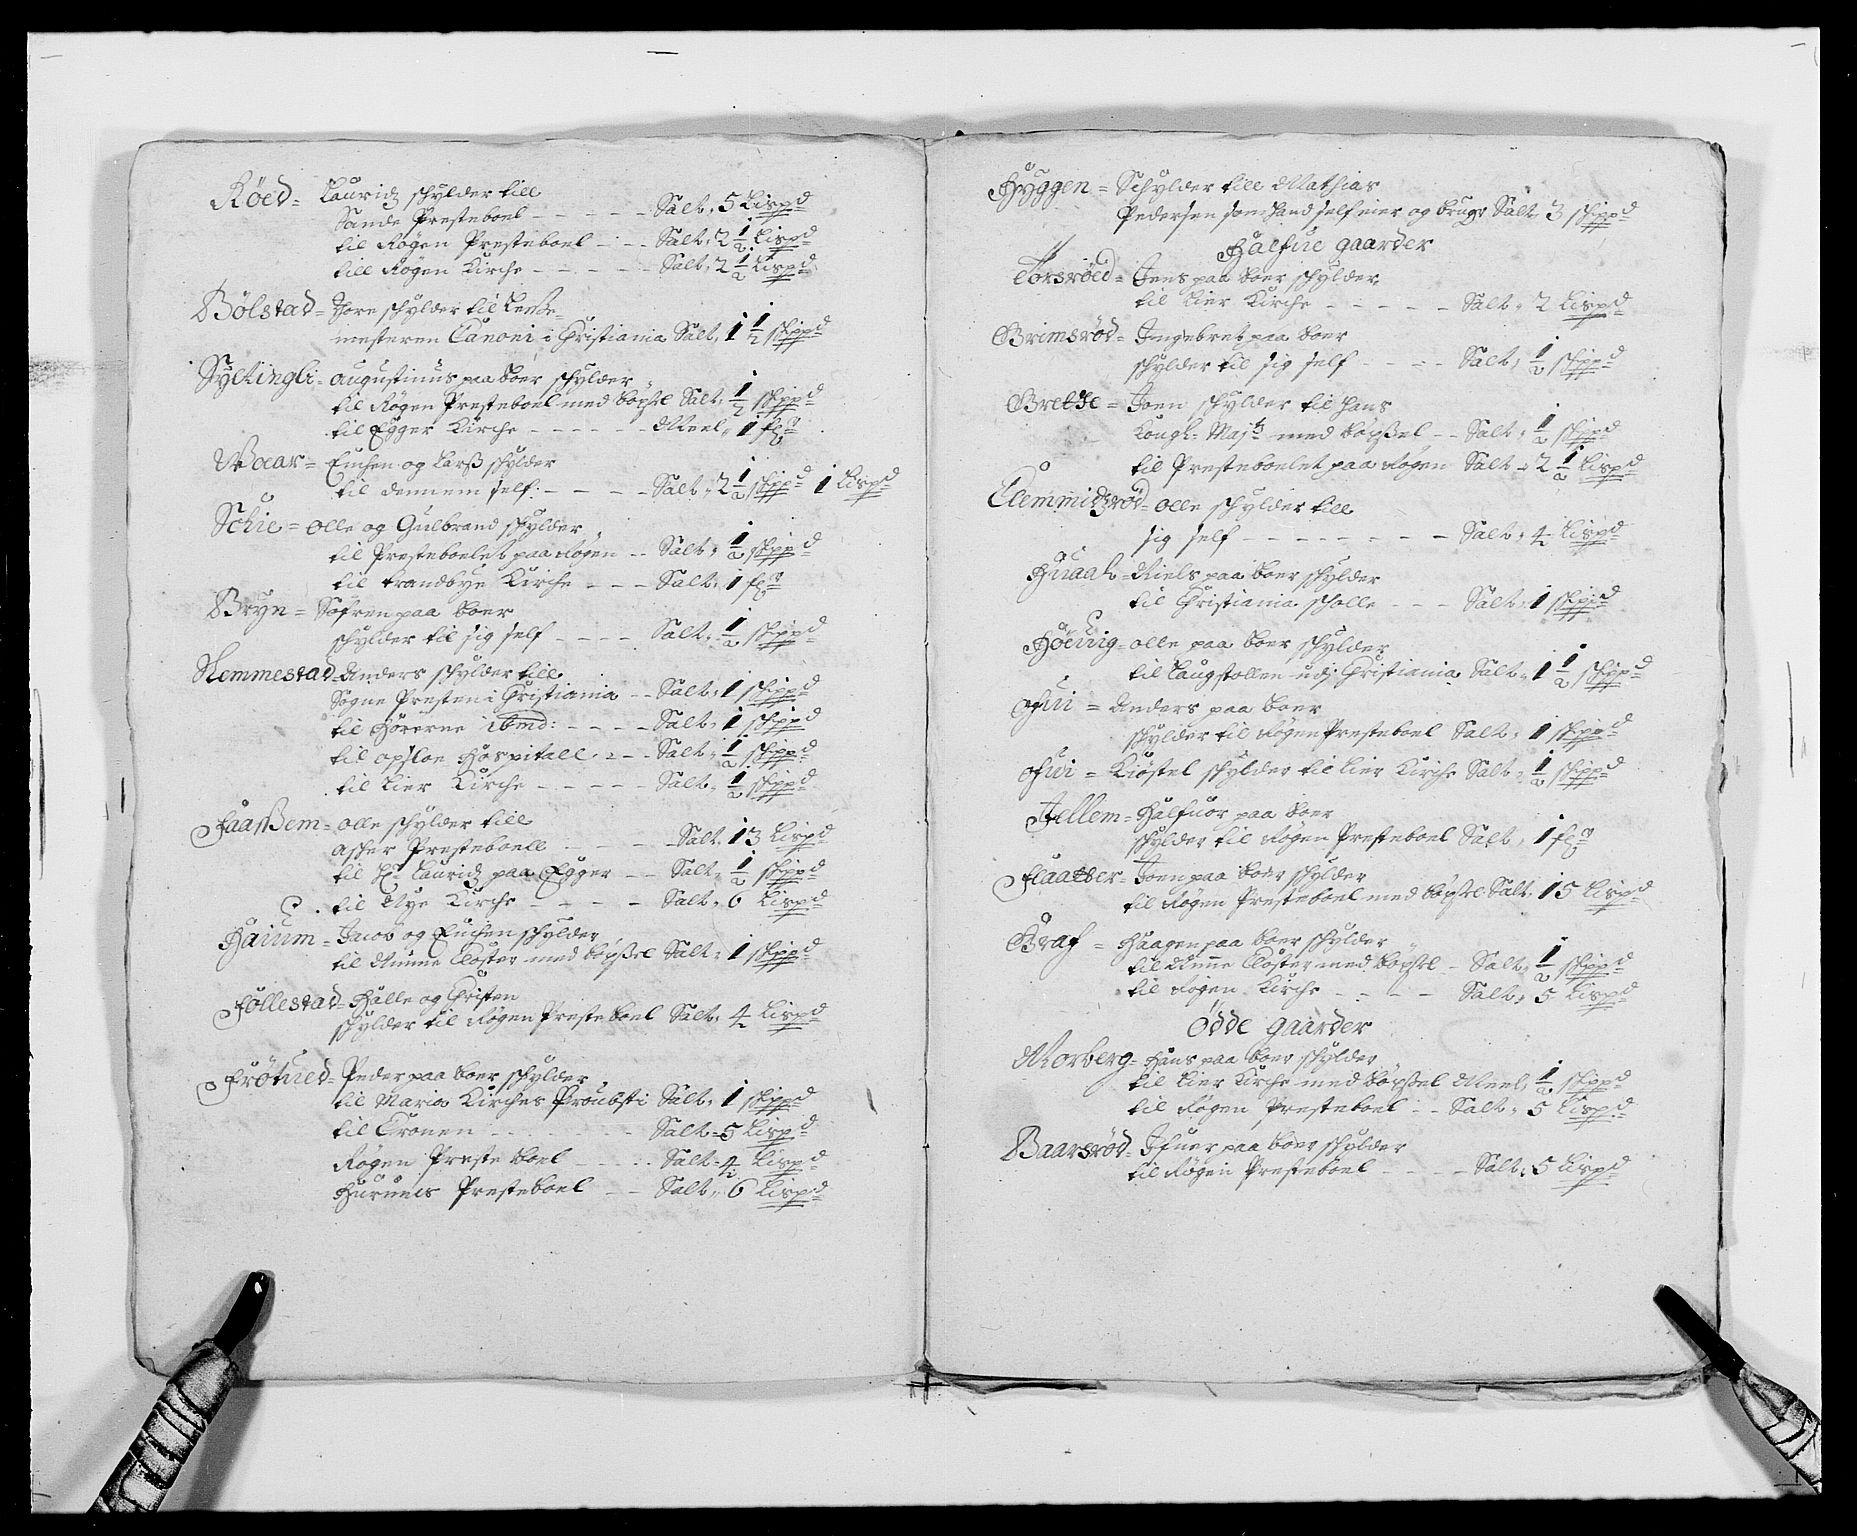 Röed = Lauridz schylder till
Sande Presteboel - - - - - Salt, 5 Lispd
til Røgen Presteboel - - - Salt, 2 1/2 Lispd
till Røgen Kirche - - - - - Salt, 2 1/2 Lispd
Bölstad = Tore schylder til Lentze-
mesteren Canoni i Christiania Salt, 1 1/2 skippd
Syltingli = Augustinus paa boer schylder
til Røgen Presteboel med böxsel Salt, 1/2 skippd
til Egger Kirche - - - - - - Meel, 1 fr
Woear = Euchen og Larß schylder
til dennem self: - - - - Salt, 2 1/2 skippd 1 Lispd
Schie = Olle og Gulbrand schylder
til Presteboelet paa Røgen - - Salt, 1/2 skippd
til Krandbye Kirche - - - Salt, 1 fr
Bryn = Söfren paa boer
schylder til sig self - - - - Salt, 1/2 skippd
Nemmestad = Anders schylder till
Sogne Presten i Christiania - - Salt, 1 skippd
til Hörerne ibmd: - - - - Salt, 1 skippd
til opsloe Hospitall - - - Salt, 1/2 skippd
til Lier Kirche - - - - - Salt, 1/2 skippd
Faaßem = Olle schylder till
Asker Presteboell - - - - Salt, 13 Lispd
til Hr Lauridz paa Egger - - Salt, 1/2 skippd
til Nye Kirche - - - - Salt, 6 Lispd
Haium = Jacob og Euchen schylder
til Nunne Closter med böxsel Salt, 1 skippd
Föllestad = Halle og Christen
schylder til Røgen Presteboel Salt, 4 Lispd
Fröthued = Peder paa boer schylder
til Maria Kirches Proubsti Salt, 1 skippd
til Cronen - - - - - Salt = 5 Lispd
Røgen Preste boel - - - Salt = 4 Lispd
Hurums Presteboel - - Salt, 6 Lispd
Hyggen = Schylder till Mathias
Pedersen som hand self eier og brugr Salt, 3 skippd
Halfue gaarder
Torsröed = Jens paa boer schylder
til Lier Kirche - - - - - Salt, 2 Lispd
Grimsröd = Ingebret paa boer
schylder til sig self - - - - Salt, 1/2 skippd
Bretze = Joen schylder til hans
Kongl: Majts med böxßel - - Salt, 1/2 skippd
til Presteboelet paa Røgen Salt = 2 1/2 Lispd
Clemmidzröd = Olle schylder till
sig self - - - - - - - - Salt, 4 Lispd
Huaal = Niels paa boer schylder
til Christiania scholle - - - Salt, 1 skippd
Höeuig = Olle paa boer schylder
til Laugstollen udj Christiania Salt, 1 1/2 skippd
Ohui = Anders paa boer
schylder til Røgen Presteboel Salt, 1 skippd
Ohui = Kiöstel schylder til Lier Kirche Salt, 1/2 skippd
Jellem = Halfuor paa boer
schylder til Røgen Presteboel Salt, 1 fr
Flaatter = Joen paa boer schylder
til Røgen Presteboel med böxsel Salt, 15 Lispd
Graf = Haagen paa boer schylder
til Nunne Closter med böxsel - Salt, 1/2 skippd
til Røgen Kirche - - - - Salt, 5 Lispd
Ödde gaarder
Morberg = Hans paa boer schylder
til Lier Kirche med böxßel Meel, 1/2 skippd
til Røgen Presteboel - - Salt, 5 Lispd
Baarsröd = Ifuer paa boer schylder
til Røgen Presteboel - - - - Salt, 5 Lispd